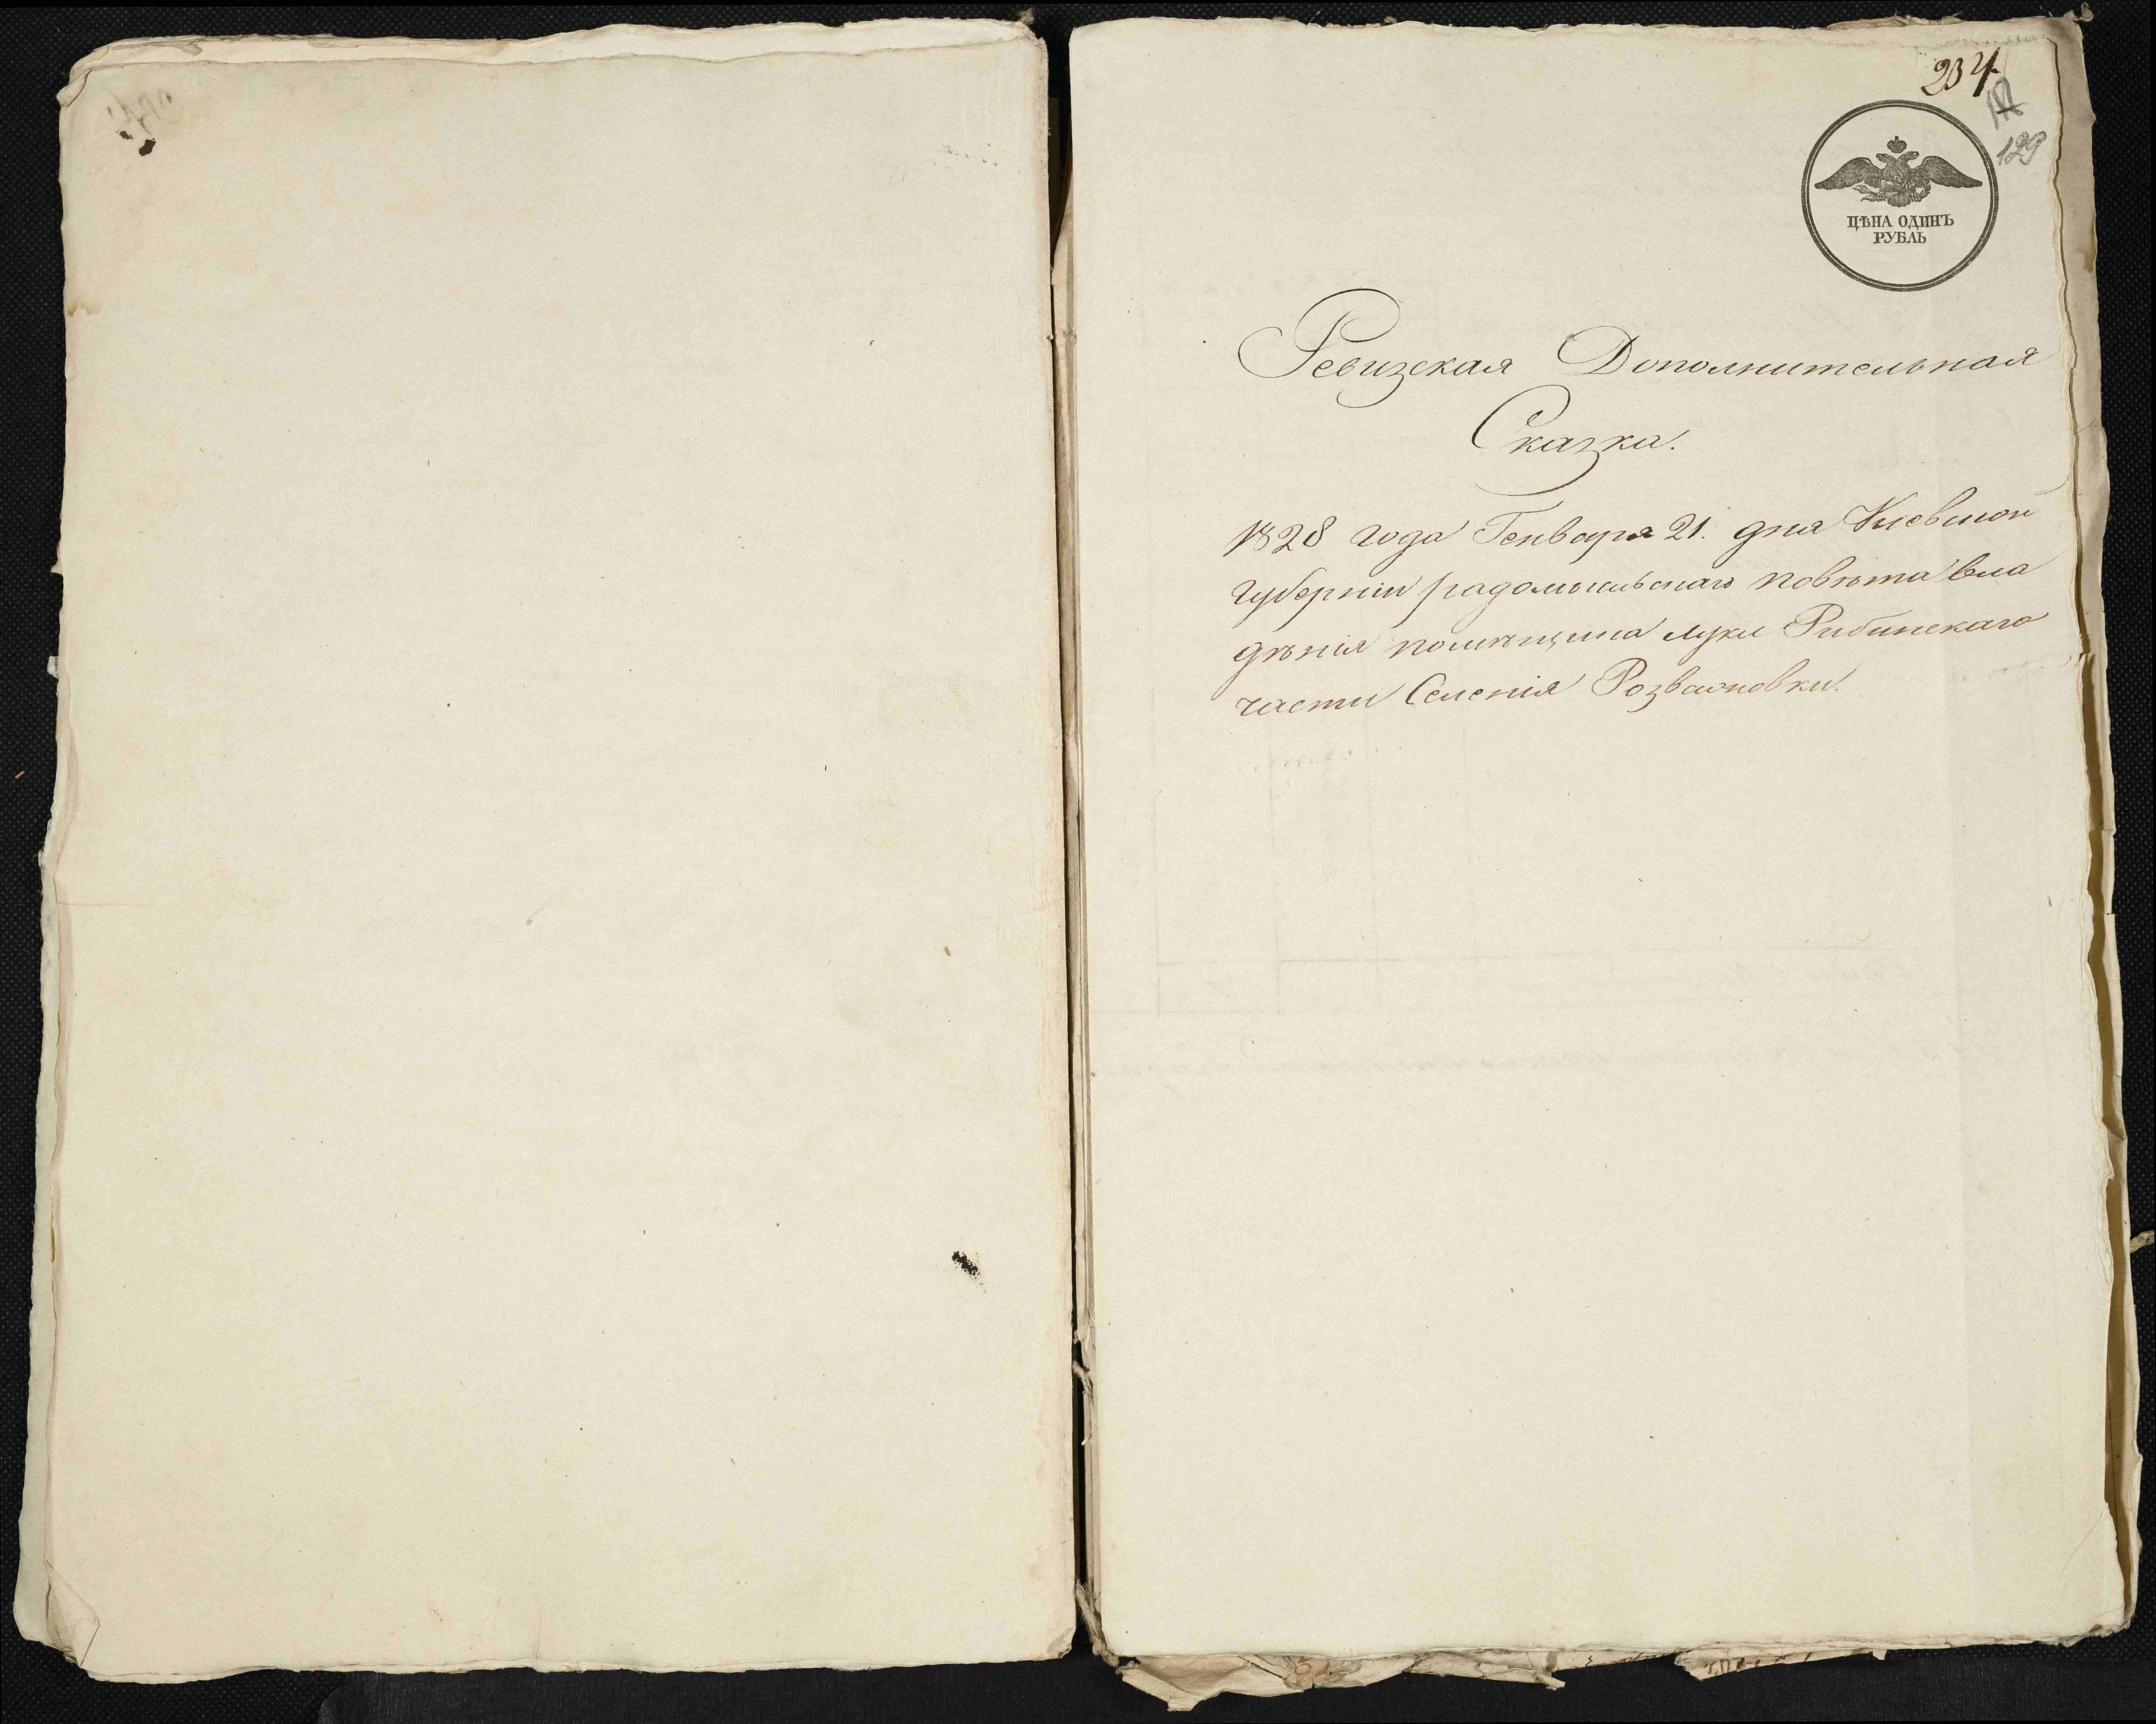 234
129
ЦѢНА ОДИНЪ
РУБЛЬ
Ревизская Дополнительная
Сказка.
1828 года Генваря 21. дня Киевской
Губерніи радомысльскаго повѣта вла
дѣнія помѣщика Луки Рибинскаго
части Селенія